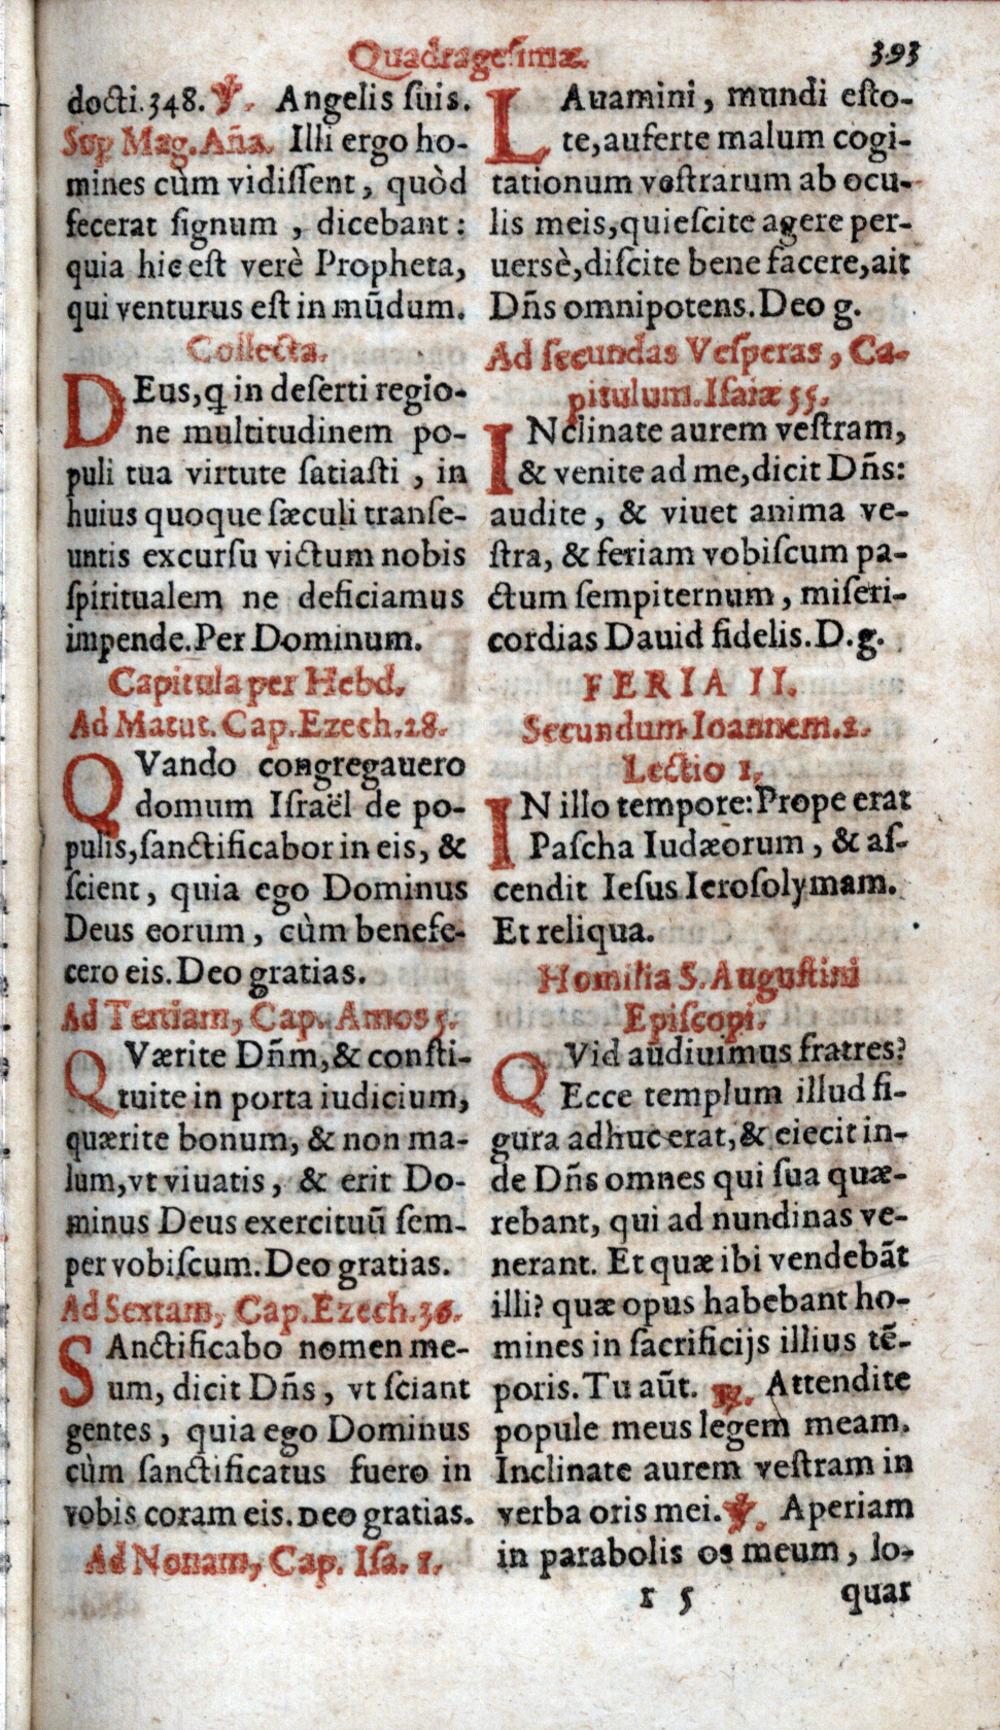 Quadragesimæ. 393
docti.348. ℣. Angelis ſuis.
Sup Mag. Aña. Illi ergo ho-
mines cùm vidiſſent, quòd
fecerat ſignum, dicebant:
quia hic eſt verè Propheta,
qui venturus eſt in mūdum.
Collecta.
DEus, q in deſerti regio-
ne multitudinem po-
puli tua virtute ſatiaſti, in
huius quoque ſæculi tranſe-
untis excurſu victum nobis
ſpiritualem ne deficiamus
impende. Per Dominum.
Capitula per Hebd.
Ad Matut. Cap. Ezech. 28.
QVando congregauero
domum Iſraël de po-
pulis, ſanctificabor in eis, &
ſcient, quia ego Dominus
Deus eorum, cùm benefe-
cero eis. Deo gratias.
Ad Tertiam, Cap. Amos 5.
QVærite Dñm, & conſti-
tuite in porta iudicium,
quærite bonum, & non ma-
lum, vt viuatis, & erit Do-
minus Deus exercituū ſem-
per vobiſcum. Deo gratias.
Ad Sextam, Cap. Ezech. 36.
SAnctificabo nomen me-
um, dicit Dñs, vt ſciant
gentes, quia ego Dominus
cùm ſanctificatus fuero in
vobis coram eis. Deo gratias.
Ad Nonam, Cap. Iſa. 1.
LAuamini, mundi eſto-
te, auferte malum cogi-
tationum veſtrarum ab ocu-
lis meis, quieſcite agere per-
uersè, diſcite bene facere, ait
Dñs omnipotens. Deo g.
Ad ſecundas Veſperas, Ca-
pitulum. Iſaiæ 55.
INclinate aurem veſtram,
& venite ad me, dicit Dñs:
audite, & viuet anima ve-
ſtra, & feriam vobiſcum pa-
ctum ſempiternum, miſeri-
cordias Dauid fidelis. D. g.
FERIA II.
Secundum Ioannem. 2.
Lectio 1.
IN illo tempore: Prope erat
Paſcha Iudæorum, & aſ-
cendit Ieſus Ieroſolymam.
Et reliqua.
Homilia S. Auguſtini
Epiſcopi.
QVid audiuimus fratres?
Ecce templum illud fi-
gura adhuc erat, & eiecit in-
de Dñs omnes qui ſua quæ-
rebant, qui ad nundinas ve-
nerant. Et quæ ibi vendebāt
illi? quæ opus habebant ho-
mines in ſacrificijs illius tē-
poris. Tu aūt. ℟. Attendite
popule meus legem meam.
Inclinate aurem veſtram in
verba oris mei. ℣. Aperiam
in parabolis os meum, lo-
r 5 quar